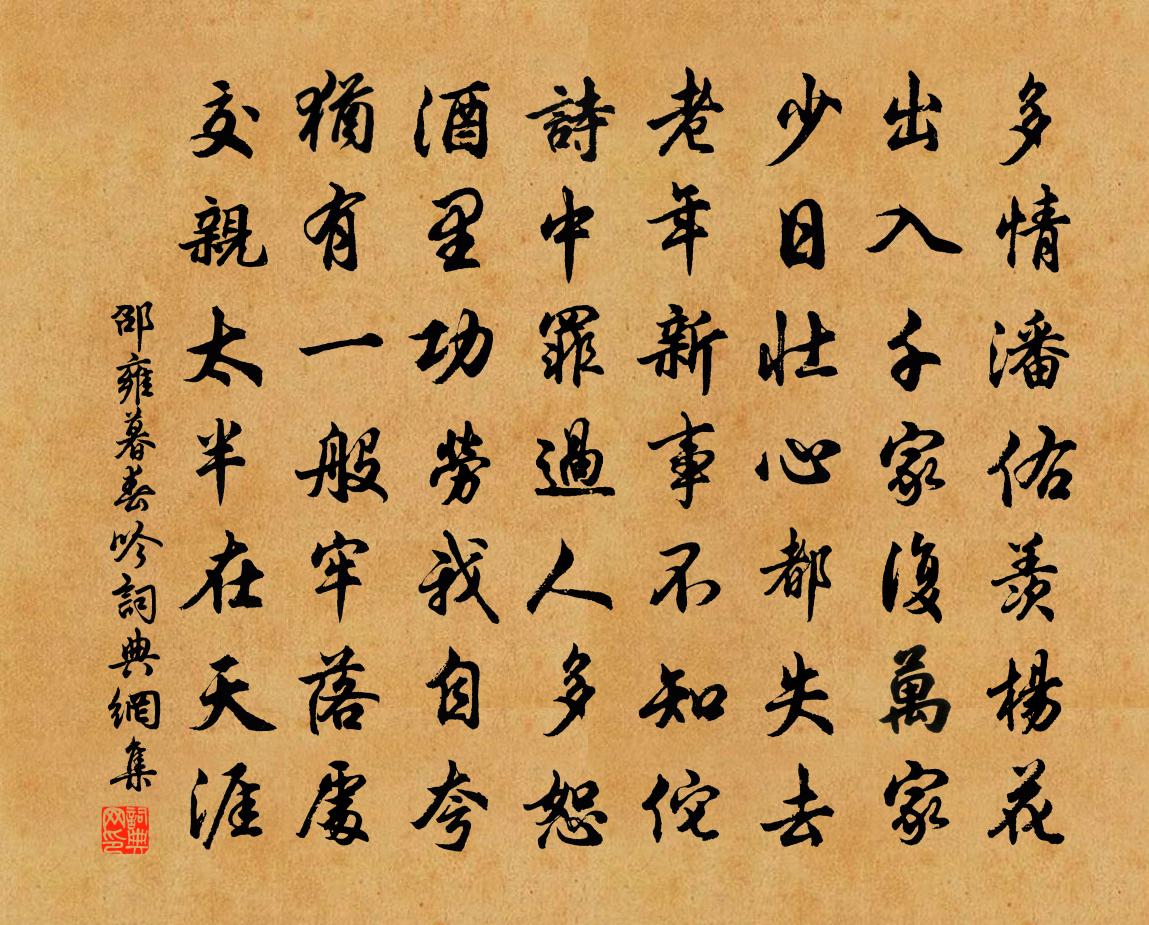 多情潘佑羨楊花
出入千家復萬家
少日壯心都失去
老年新事不知侘
詩中罪過人多恕
酒里功勞我自夸
猶有一般牢落處
交親太半在天涯
邵雍暮春吟詞典網集
詞典網印